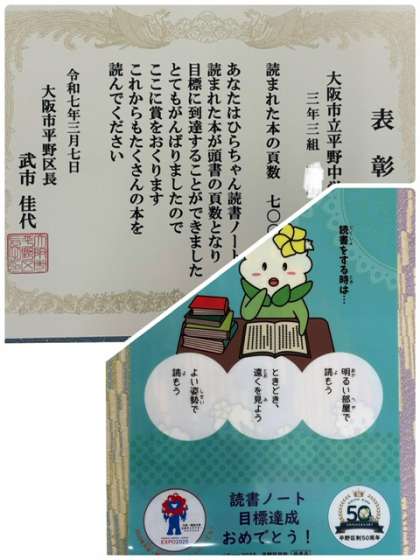 表彰
大阪市立平野中
三年三組
読まれた本の頁数 七〇〇
あなたはひらちゃん読書ノート
読まれた本が頭書の頁数となり
目標に到達することができました
とてもがんばりましたので
ここに賞をおくります
これからもたくさんの本を
読んでください
令和七年三月七日
大阪市平野区長
武市 佳代
読書をする時は…
明るい部屋で
読もう
ときどき、
遠くを見よう
よい姿勢で
読もう
読書ノート
目標達成
おめでとう!
EXPO2025
50
ANNIVERSARY
平野区制50周年